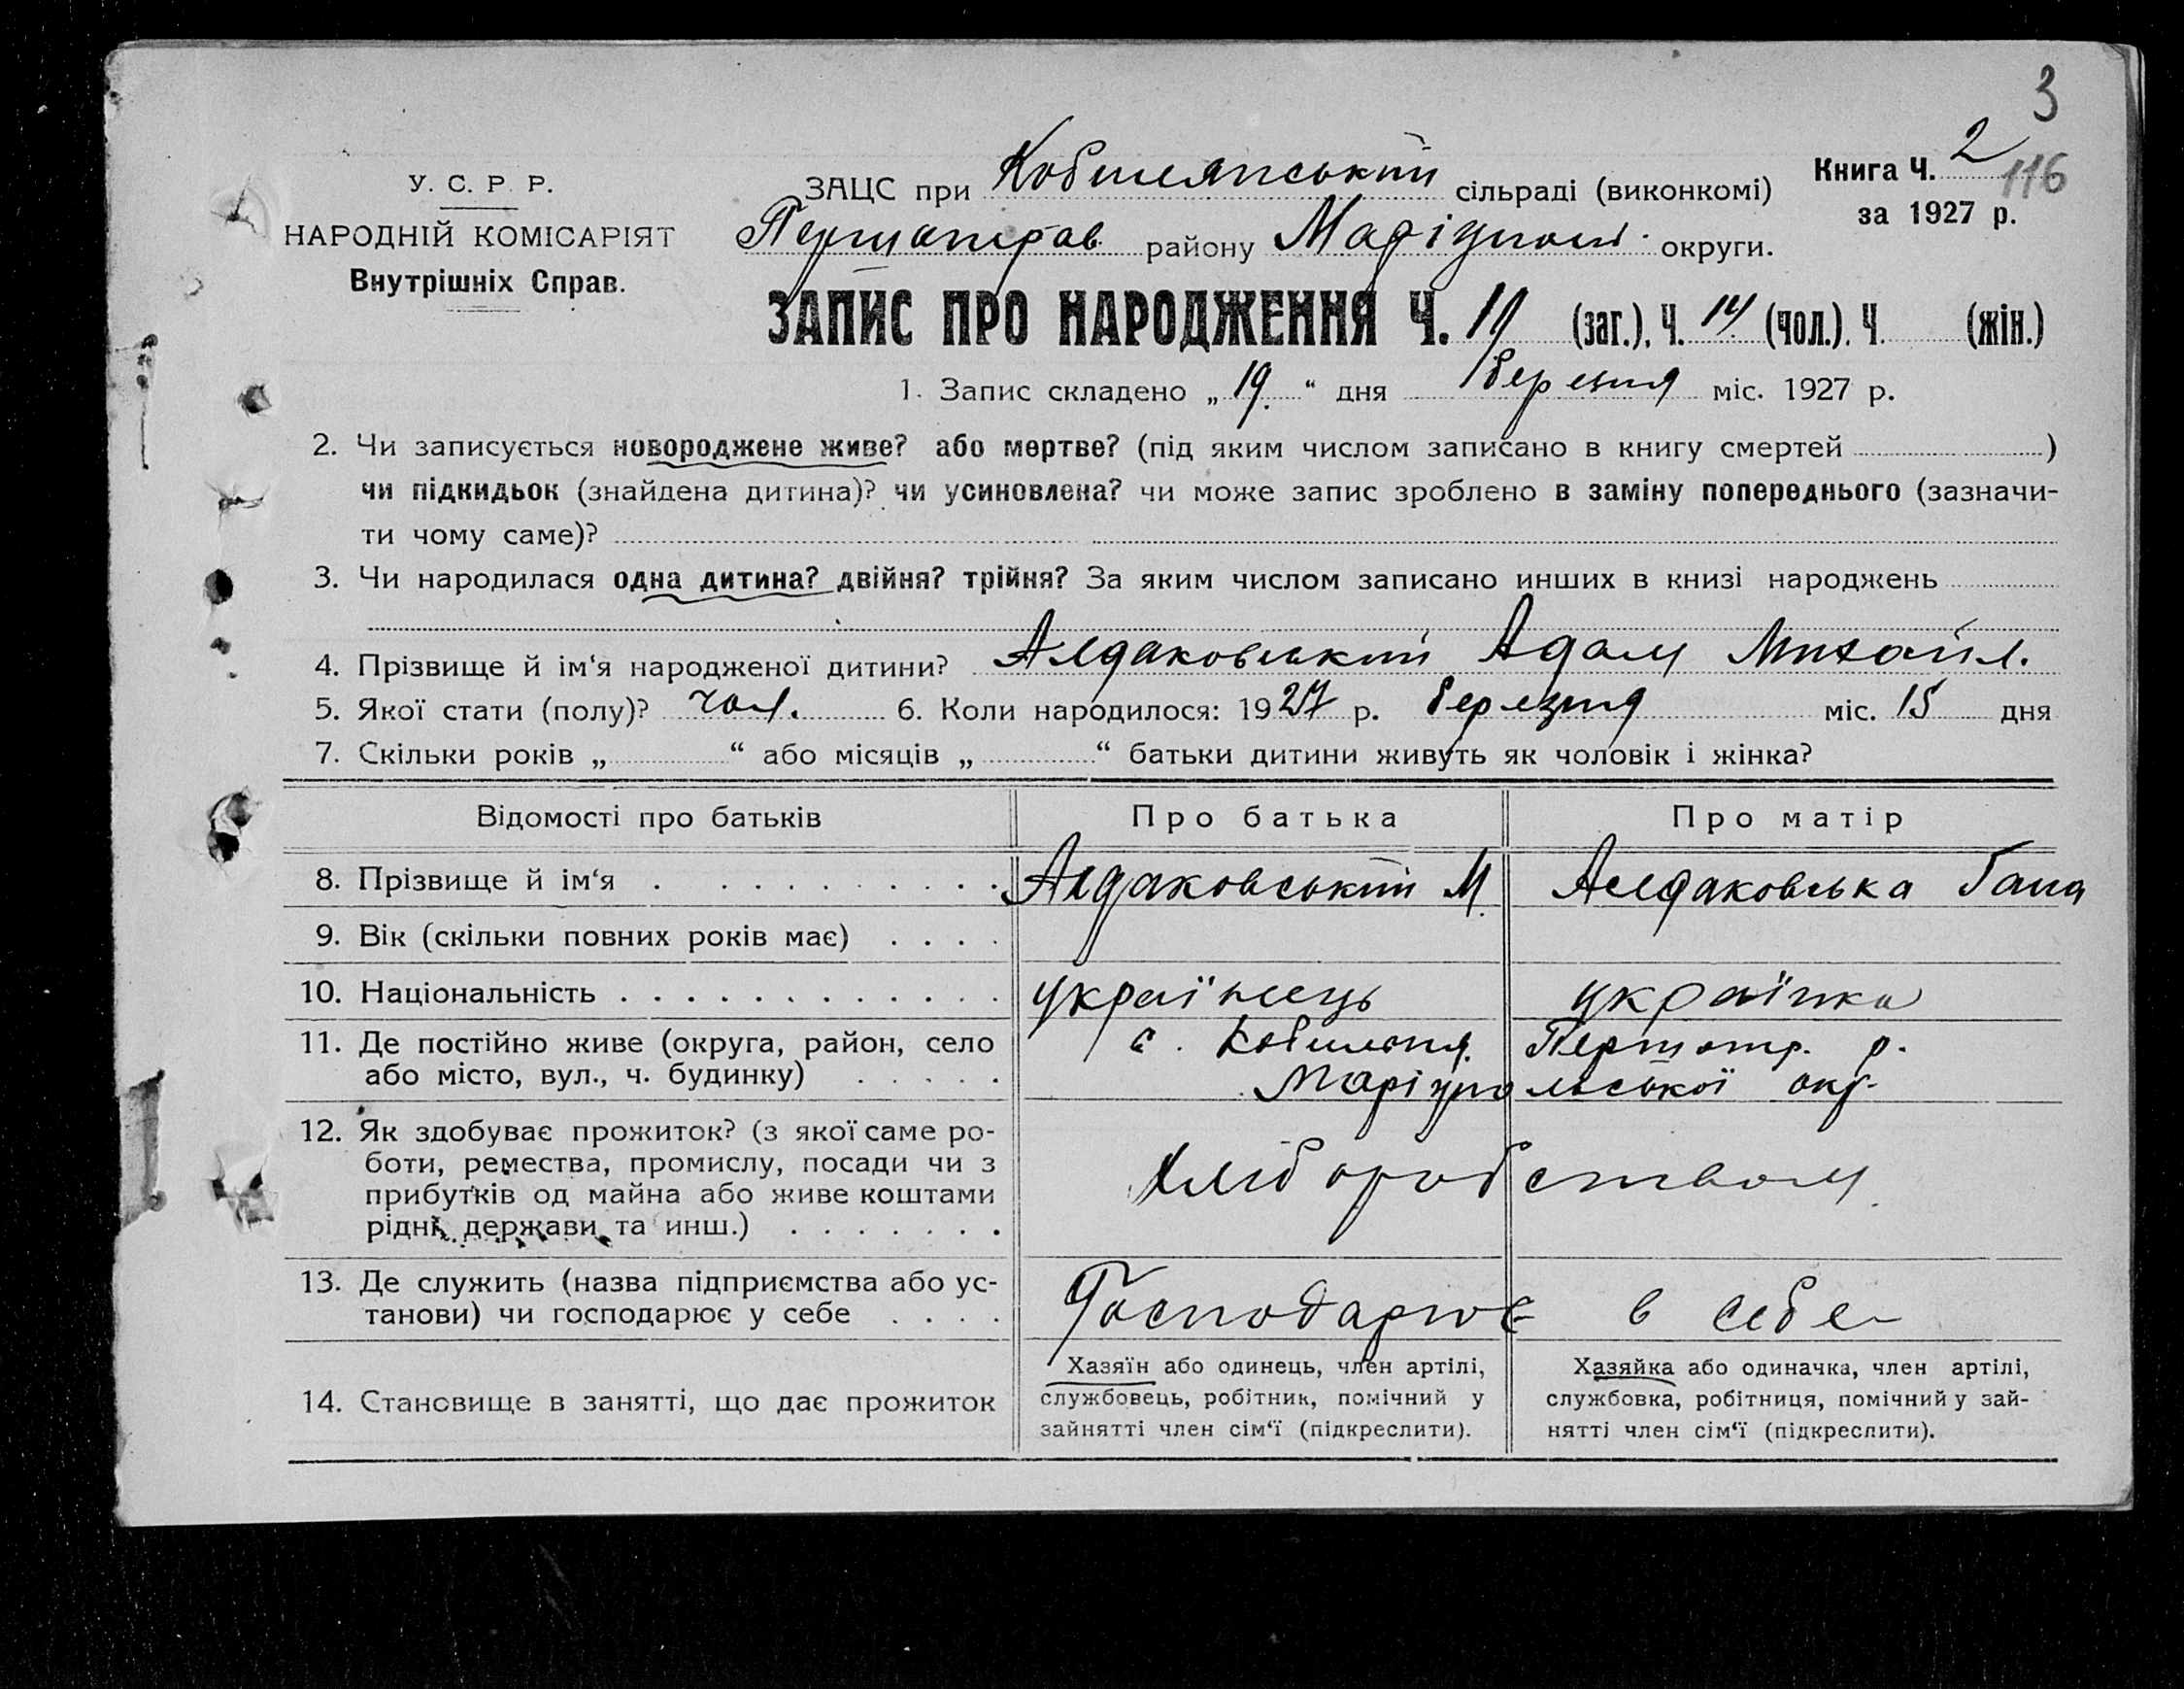 3
У. С. Р. Р.
НАРОДНІЙ КОМІСАРІЯТ
Внутрішніх Справ.
ЗАЦС при Кобилянській сільраді (виконкомі)
Книга Ч. 2
116
за 1927 р.
Першотрав. району Маріупол. округи.
ЗАПИС ПРО НАРОДЖЕННЯ Ч. 19 (заг.), Ч. 14 (чол.). Ч. (жін.)
1. Запис складено „ 19. “ дня березня міс. 1927 р.
2. Чи записується новороджене живе? або мертве? (під яким числом записано в книгу смертей )
чи підкидьок (знайдена дитина)? чи усиновлена? чи може запис зроблено в заміну попереднього (зазначи-
ти чому саме)?
3. Чи народилася одна дитина? двійня? трійня? За яким числом записано инших в книзі народжень
4. Прізвище й ім‘я народженої дитини? Алдаковський Адам Михайл.
5. Якої стати (полу)? чол. 6. Коли народилося: 1927 р. березня міс. 15 дня
7. Скільки років „ “ або місяців „ “ батьки дитини живуть як чоловік і жінка?
Відомості про батьків Про батька Про матір
8. Прізвище й ім‘я Алдаковський М. Алдаковська Гана
9. Вік (скільки повних років має)
10. Національність українець українка
11. Де постійно живе (округа, район, село с. Першотр. р.
або місто, вул., ч. будинку) Маріупольської окр.
12. Як здобуває прожиток? (з якої саме ро-
боти, ремества, промислу, посади чи з
прибутків од майна або живе коштами
рідні, держави та инш.)
Хліборобством
13. Де служить (назва підприємства або ус-
танови) чи господарює у себе
Господарює в себе
14. Становище в занятті, що дає прожиток
Хазяїн або одинець, член артілі,
службовець, робітник, помічний у
зайнятті член сім‘ї (підкреслити).
Хазяйка або одиначка, член артілі,
службовка, робітниця, помічний у зай-
нятті член сім‘ї (підкреслити).